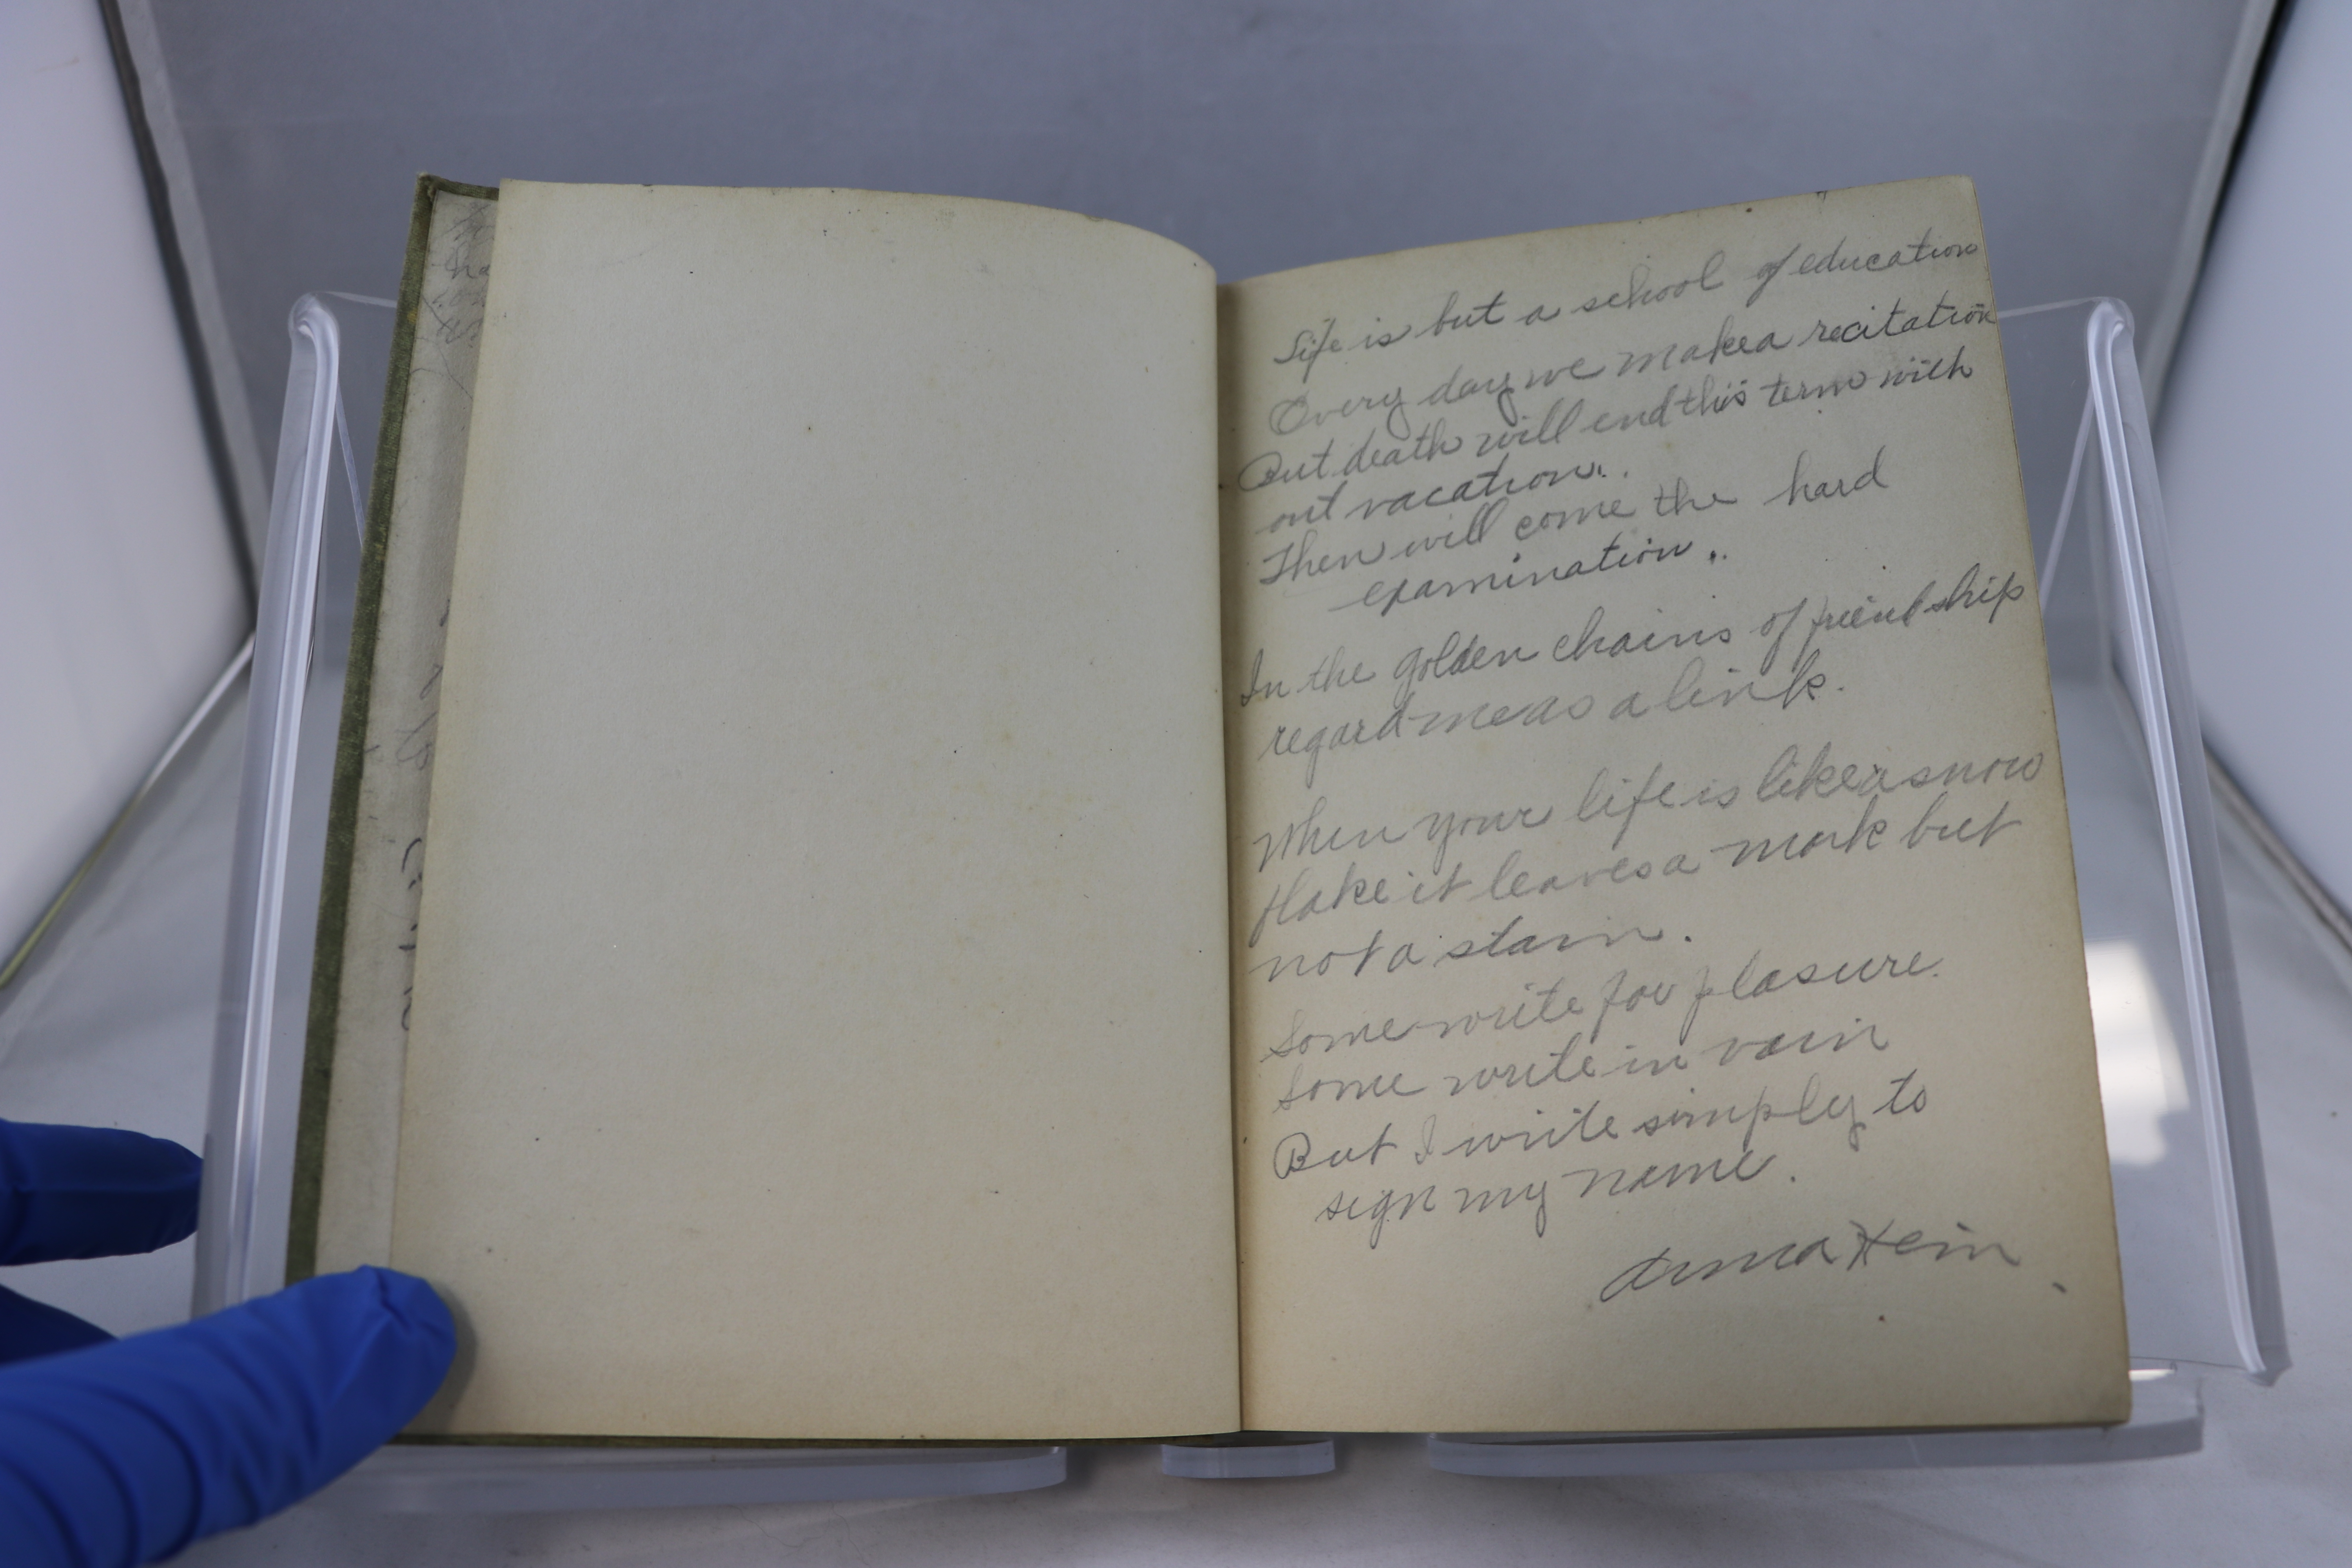 Life is but a school of education
Every day we make a recitation
But death will end this term with
out vacation..
Then will come the hard
examination..
In the golden chains of friendship
regard me as a link.
When your life is like a snow
flake it leaves a mark but
not a stain.
Some write for plasure.
Some write in vain
But I write simply to
sign my name.
Anna Hein